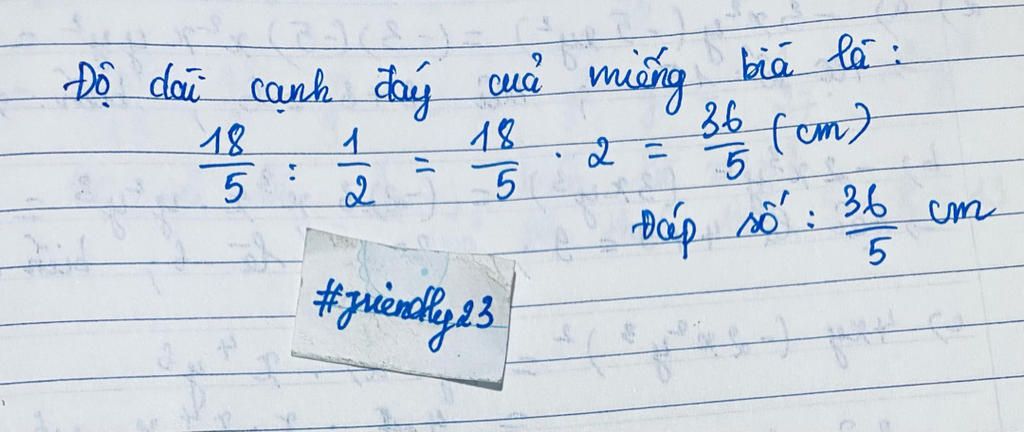 Độ dài cạnh đáy của miếng bìa là:
18/5 : 1/2 = 18/5 . 2 = 36/5 (cm)
Đáp số: 36/5 cm
#friendly23